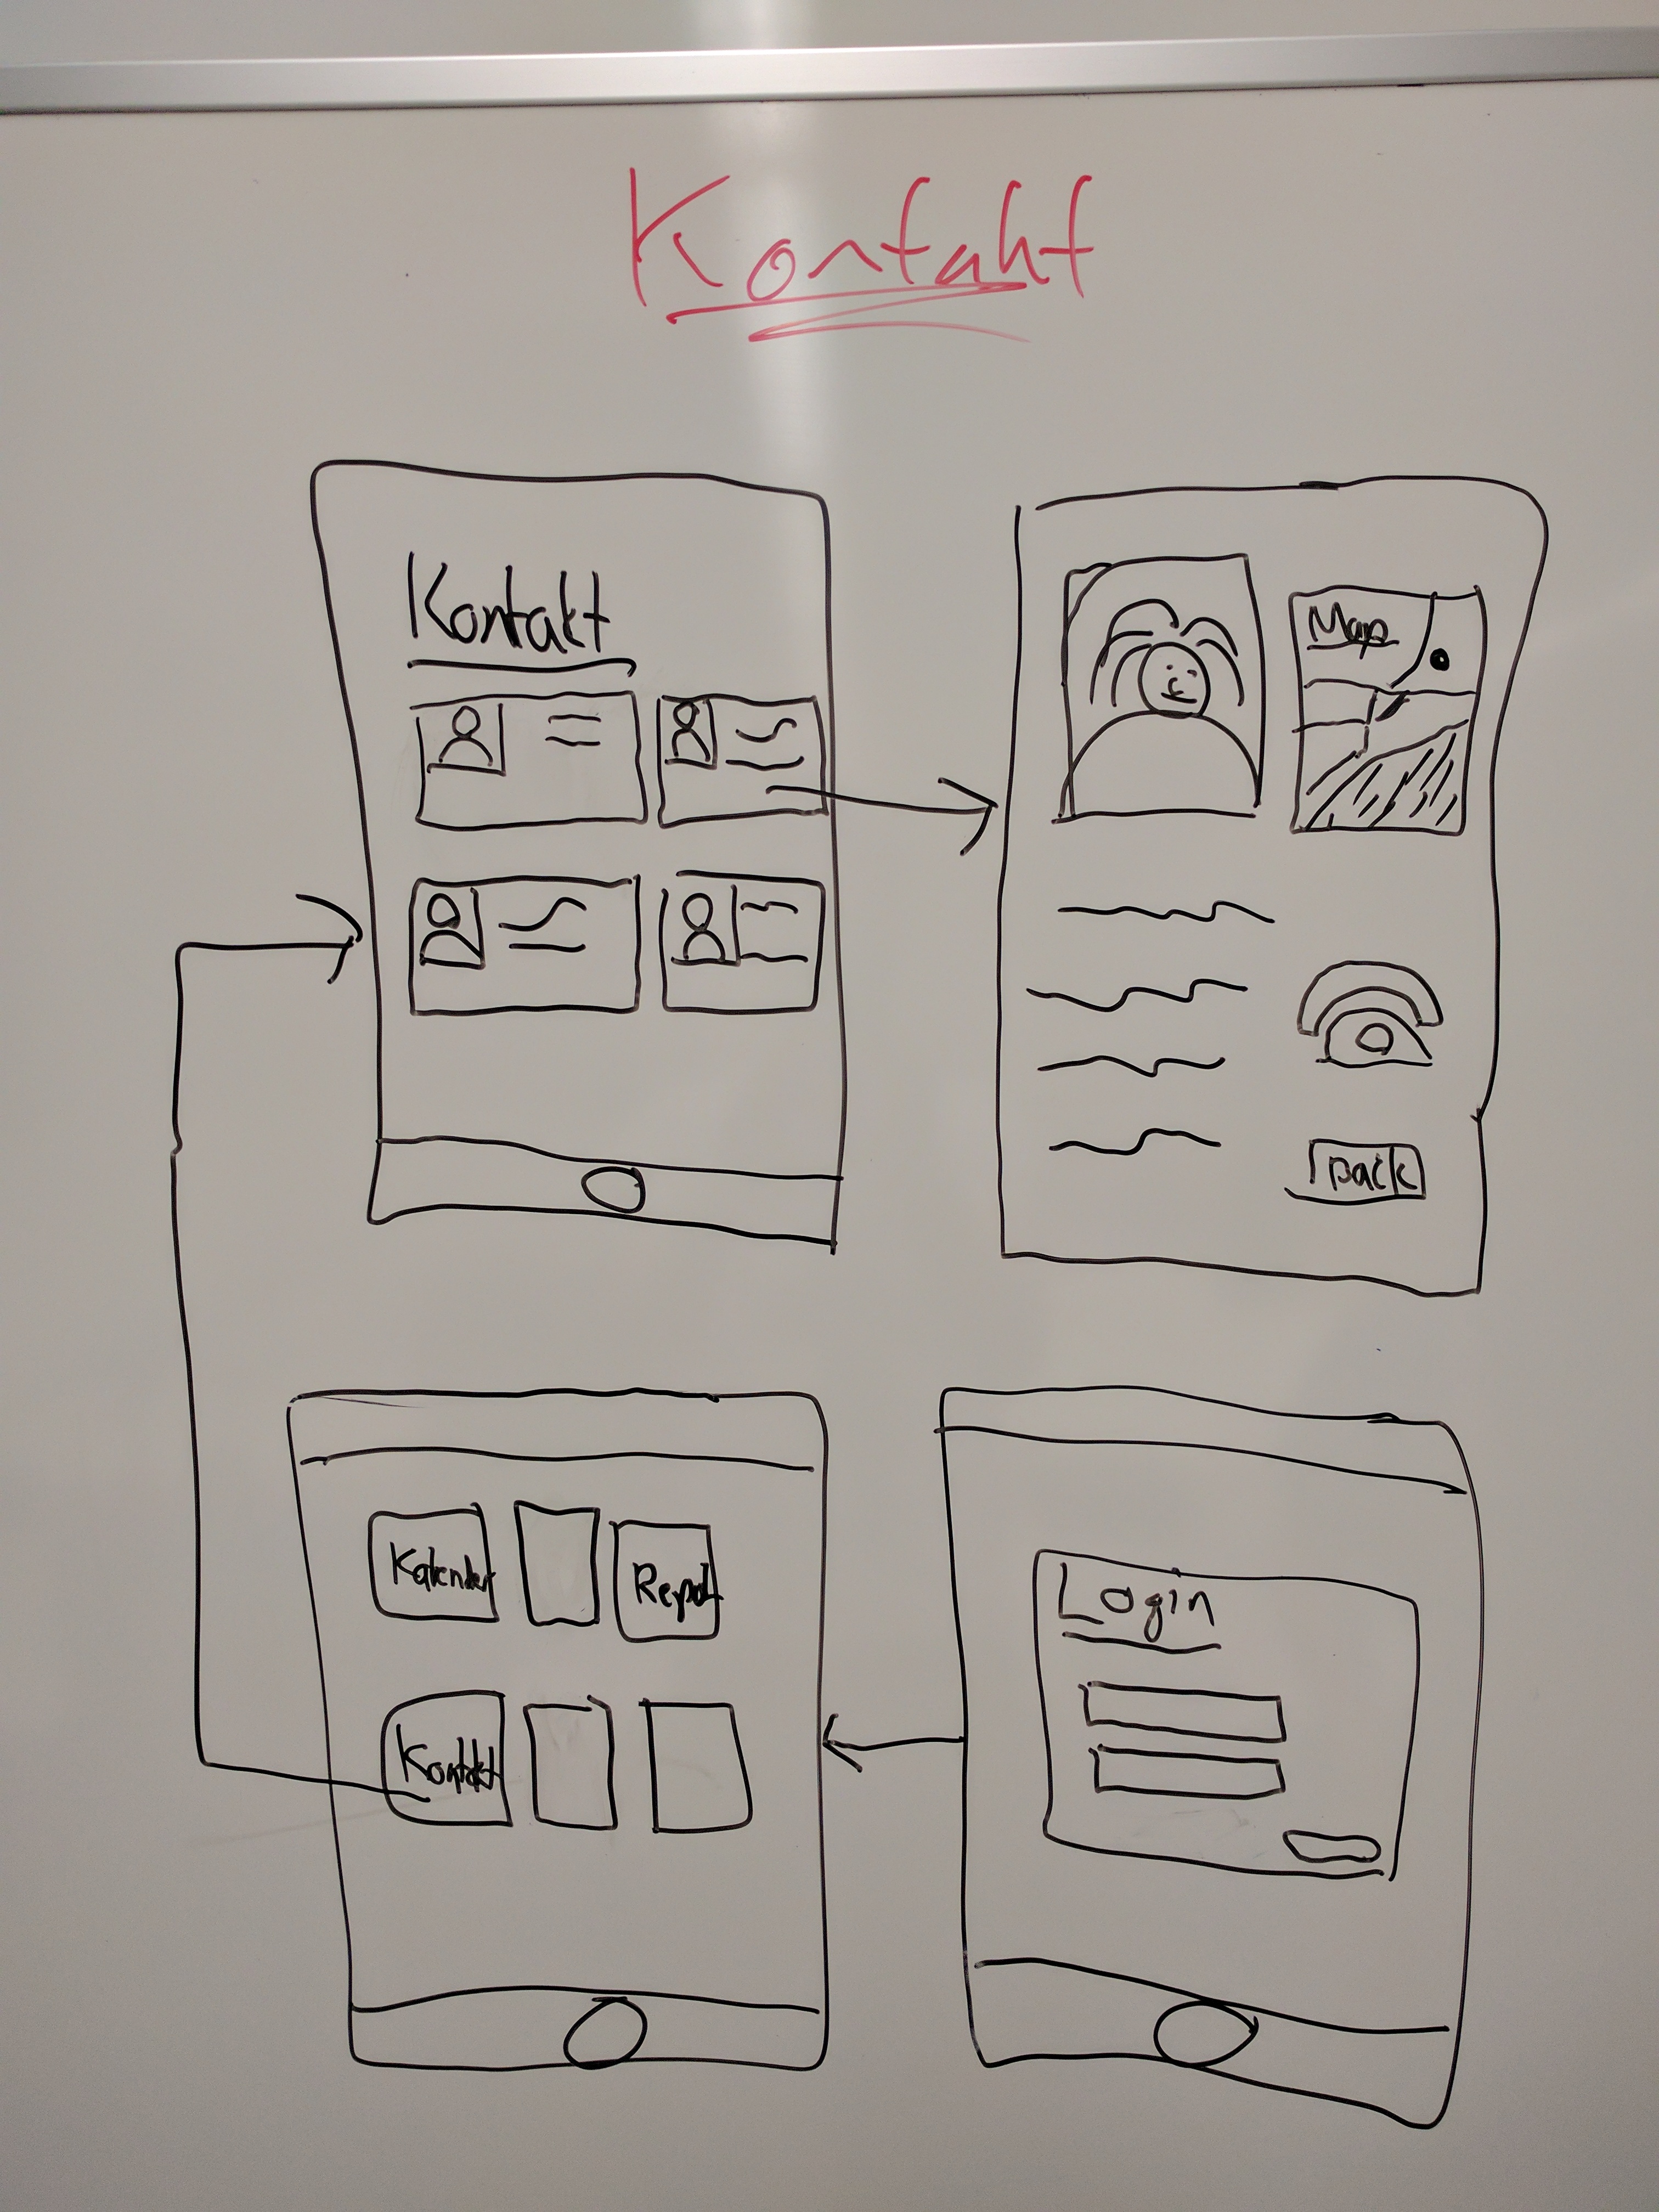 Kontakt
Kontakt
Map
back
Kalender
Report
Kontakt
Login